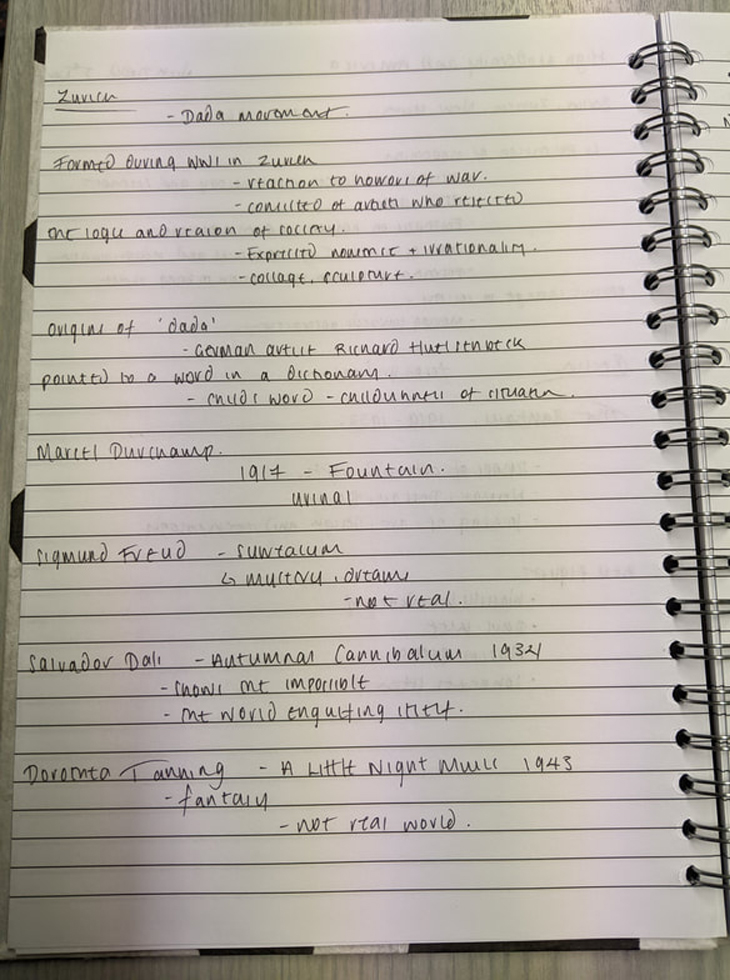 Zurich
- Dada movement.
Formed during WW1 in Zurich
- reaction to horrors of war.
- consisted of artists who rejected
the logic and reason of society.
- Expressed nonsense + irrationality.
- collage, sculpture.
origins of 'dada'
- German artist Richard Huelsenbeck
pointed to a word in a dictionary.
- child's word - childishness of situation.
Marcel Durchamp.
1917 - Fountain.
urinal
Sigmund Freud - surrealism
↳ mystery, dreams
- not real.
Salvador Dali - Autumnal Cannibalism 1934
- shows the impossible
- the world engulfing itself.
Dorothea Tanning - A Little Night Music 1943
- fantasy
- not real world.